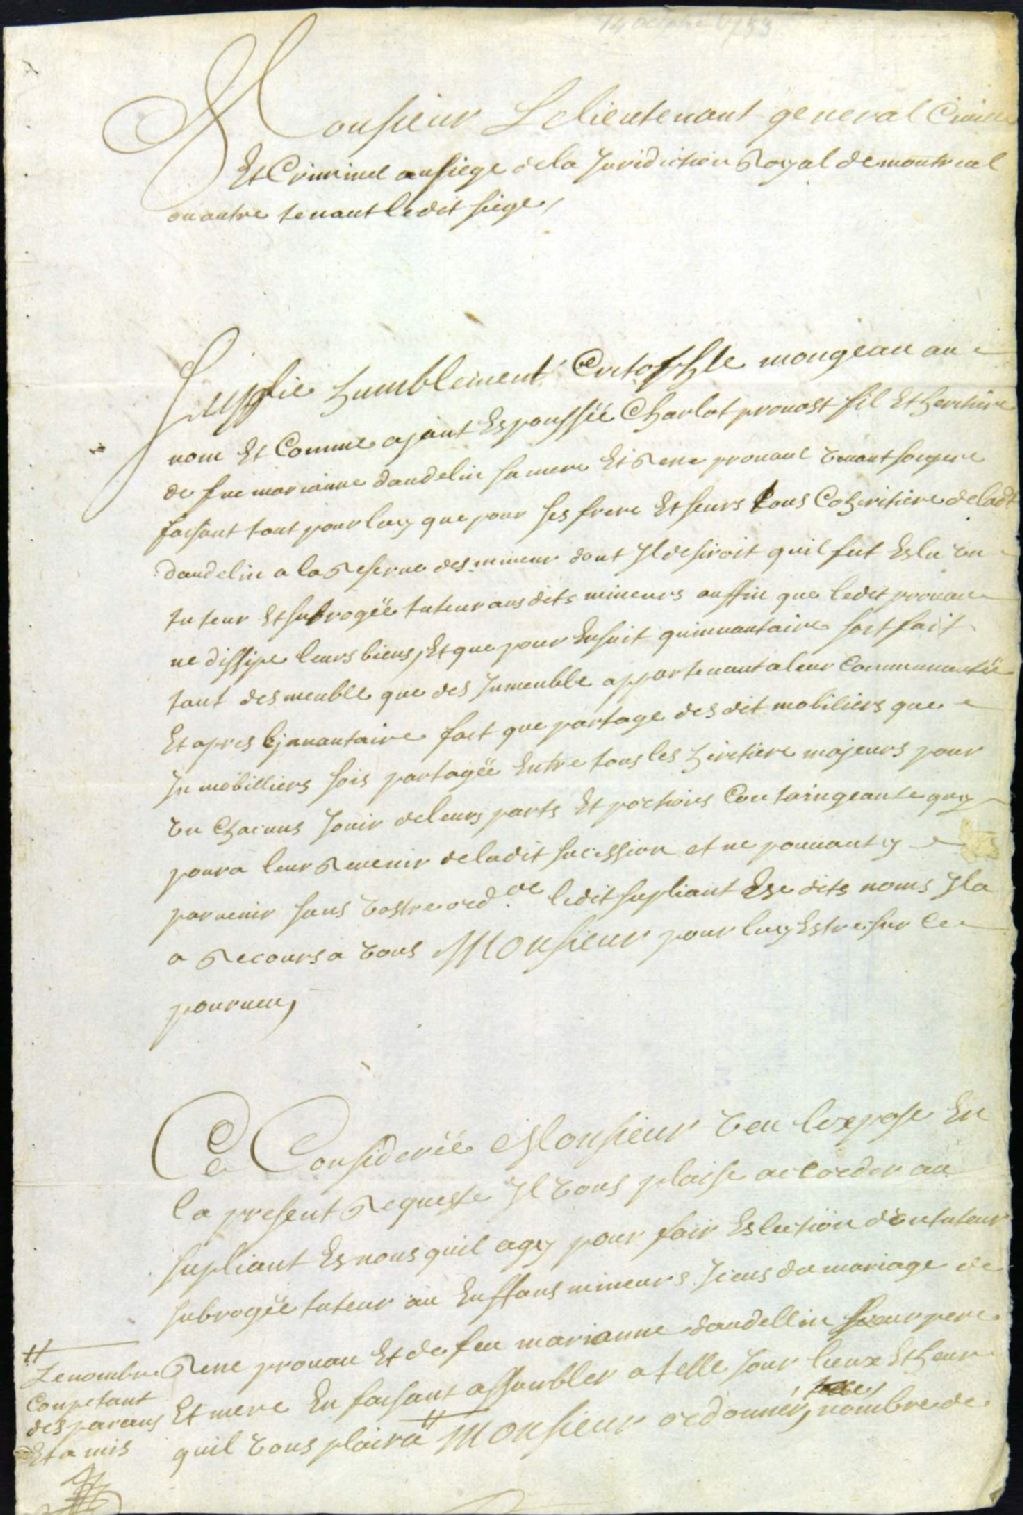 14 octobre 1733
Monsieur Lelieutenant general Civil
Et Criminel ausiege dela Juridiction Royal demontreal
ouautre tenant ledit siege,
Suplie humblement Critophle mongeau au
nom Et Comme ajant Espoussée Charlot prouost fil Et heritiere
de fue marianne dandelin sa mere Et Rene prouaut
faisant tant pour luy que pour ses frere Et seurs tous Coheritiere deladt
dandelin a la Reserue des mineur dont Jl desiroit quil fut Eslu un
tuteur Et subrogée tuteur aus dits mineurs auffin que ledit prouau
ne dissipe leurs biens, Et que pour Ensuit quinuantaire soit fait
tant des meuble que des Jmeubble appartenant a leur Communautée
Et apres Linuantaire fait que partage des dit mobiliers que
Jn mobilliers sois partagée Entre tous les heritiere majeurs pour
un Chacuns Jouir deleurs parts Et portions Containgeante quy
poura leur Reuenir deladit sucession et ne pouuant y
paruenir sans vostre ord.ce ledit supliant Ese dits noms Jla
a Recours a vous Monsieur pour luy Estre sur Ce
pourueu,
Ce Considerée Monsieur veu lexpose En
la present Requeste Jl vous plaise accorder au
supliant Es nous quil agy pour fair Eslection dun tuteur
subrogée tuteur au Enffans mineurs Jceus du mariage de
Rene prouau Et de feu marianne dandellin pere
Et mere En faisant assambler a telle Jour lieux Et heure
quil vous plaira # Monsieur ordonner, nombre de
#
Lenombre
Conpetant
des parans
Et amis